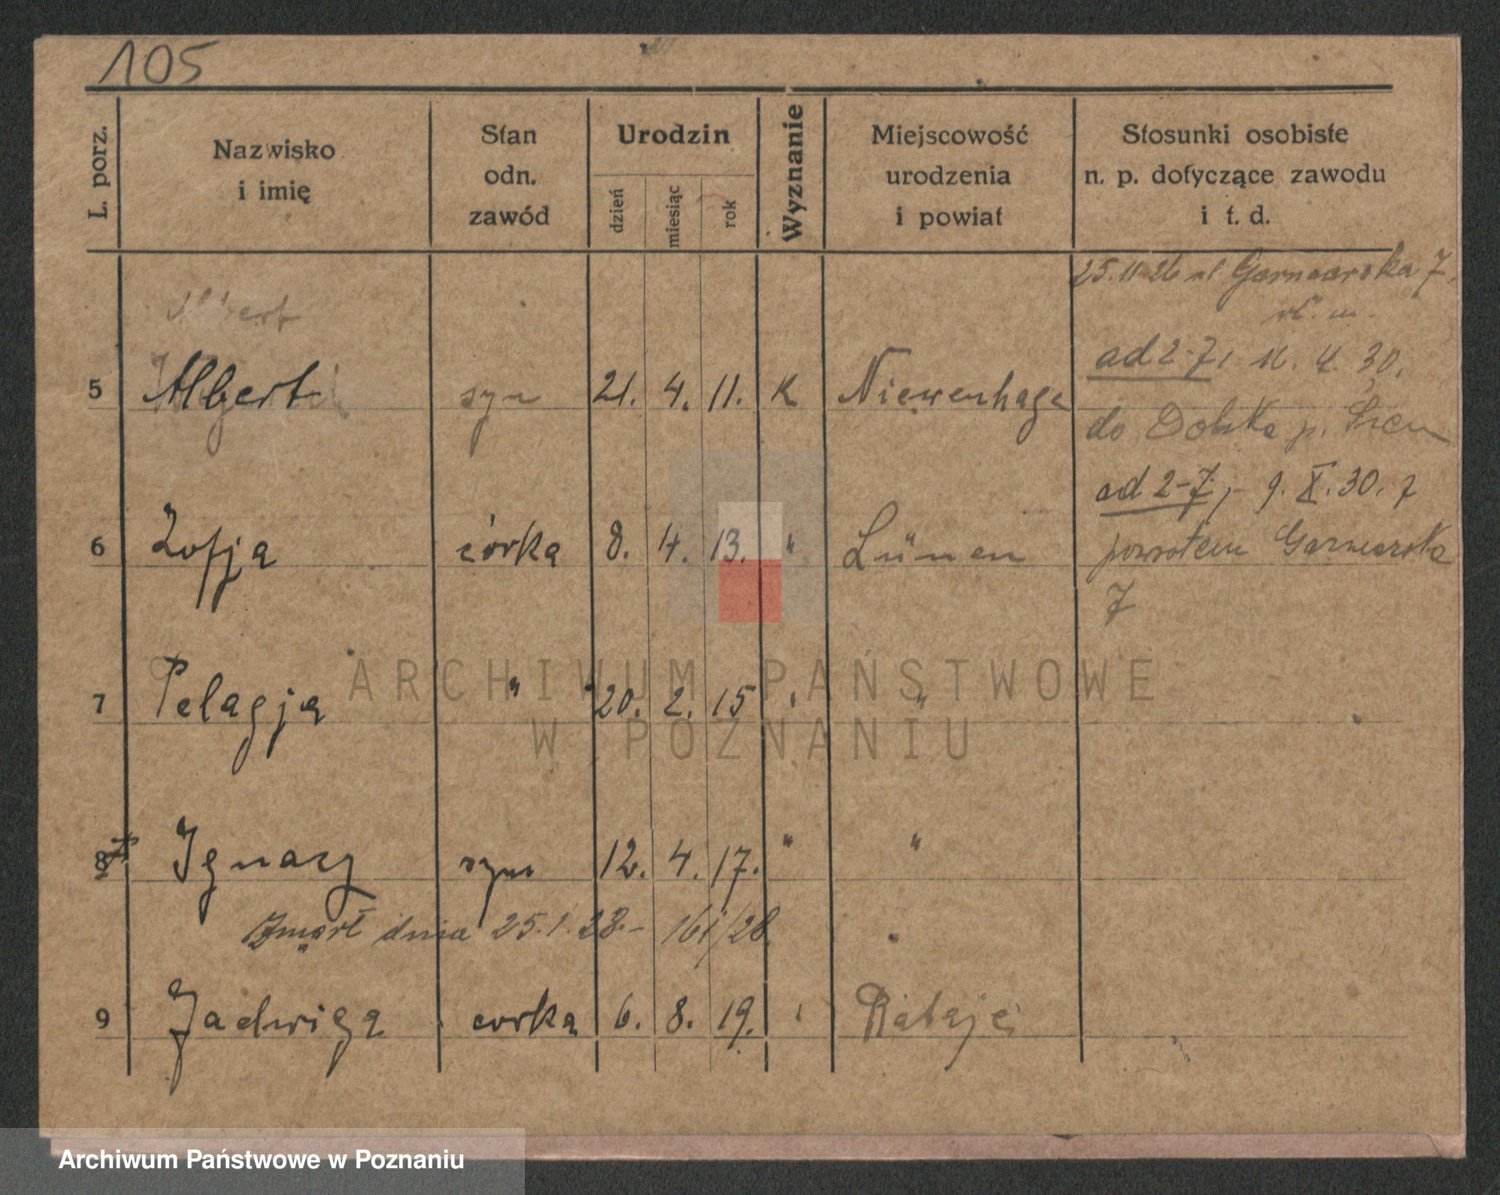 105
L. porz.
Nazwisko
i imię
Stan
odn.
zawód
Urodzin
dzień
miesiąc
rok
Wyznanie
Miejscowość
urodzenia
i powiat
Stosunki osobiste
n. p. dotyczące zawodu
i t. d.
25.11.26 ul Garncarska 7.
Albert
ad 2-7, 11. 4. 30.
5 Albert syn 21. 4. 11. K Niewenhage
do Dolska p. Śrem
ad 2-7, 9. X. 30. z
6 Zofja córka 8. 4. 13. " Lünen
powrotem Garncarska
7
7 Pelagja " 20. 2. 15 " "
8 Ignacy syn 12. 4. 17. " "
Zmarł dnia 25.1.28 - 161/28
9 Jadwiga corka 6. 8. 19. " Rataje
ARCHIWUM PAŃSTWOWE
W POZNANIU
Archiwum Państwowe w Poznaniu